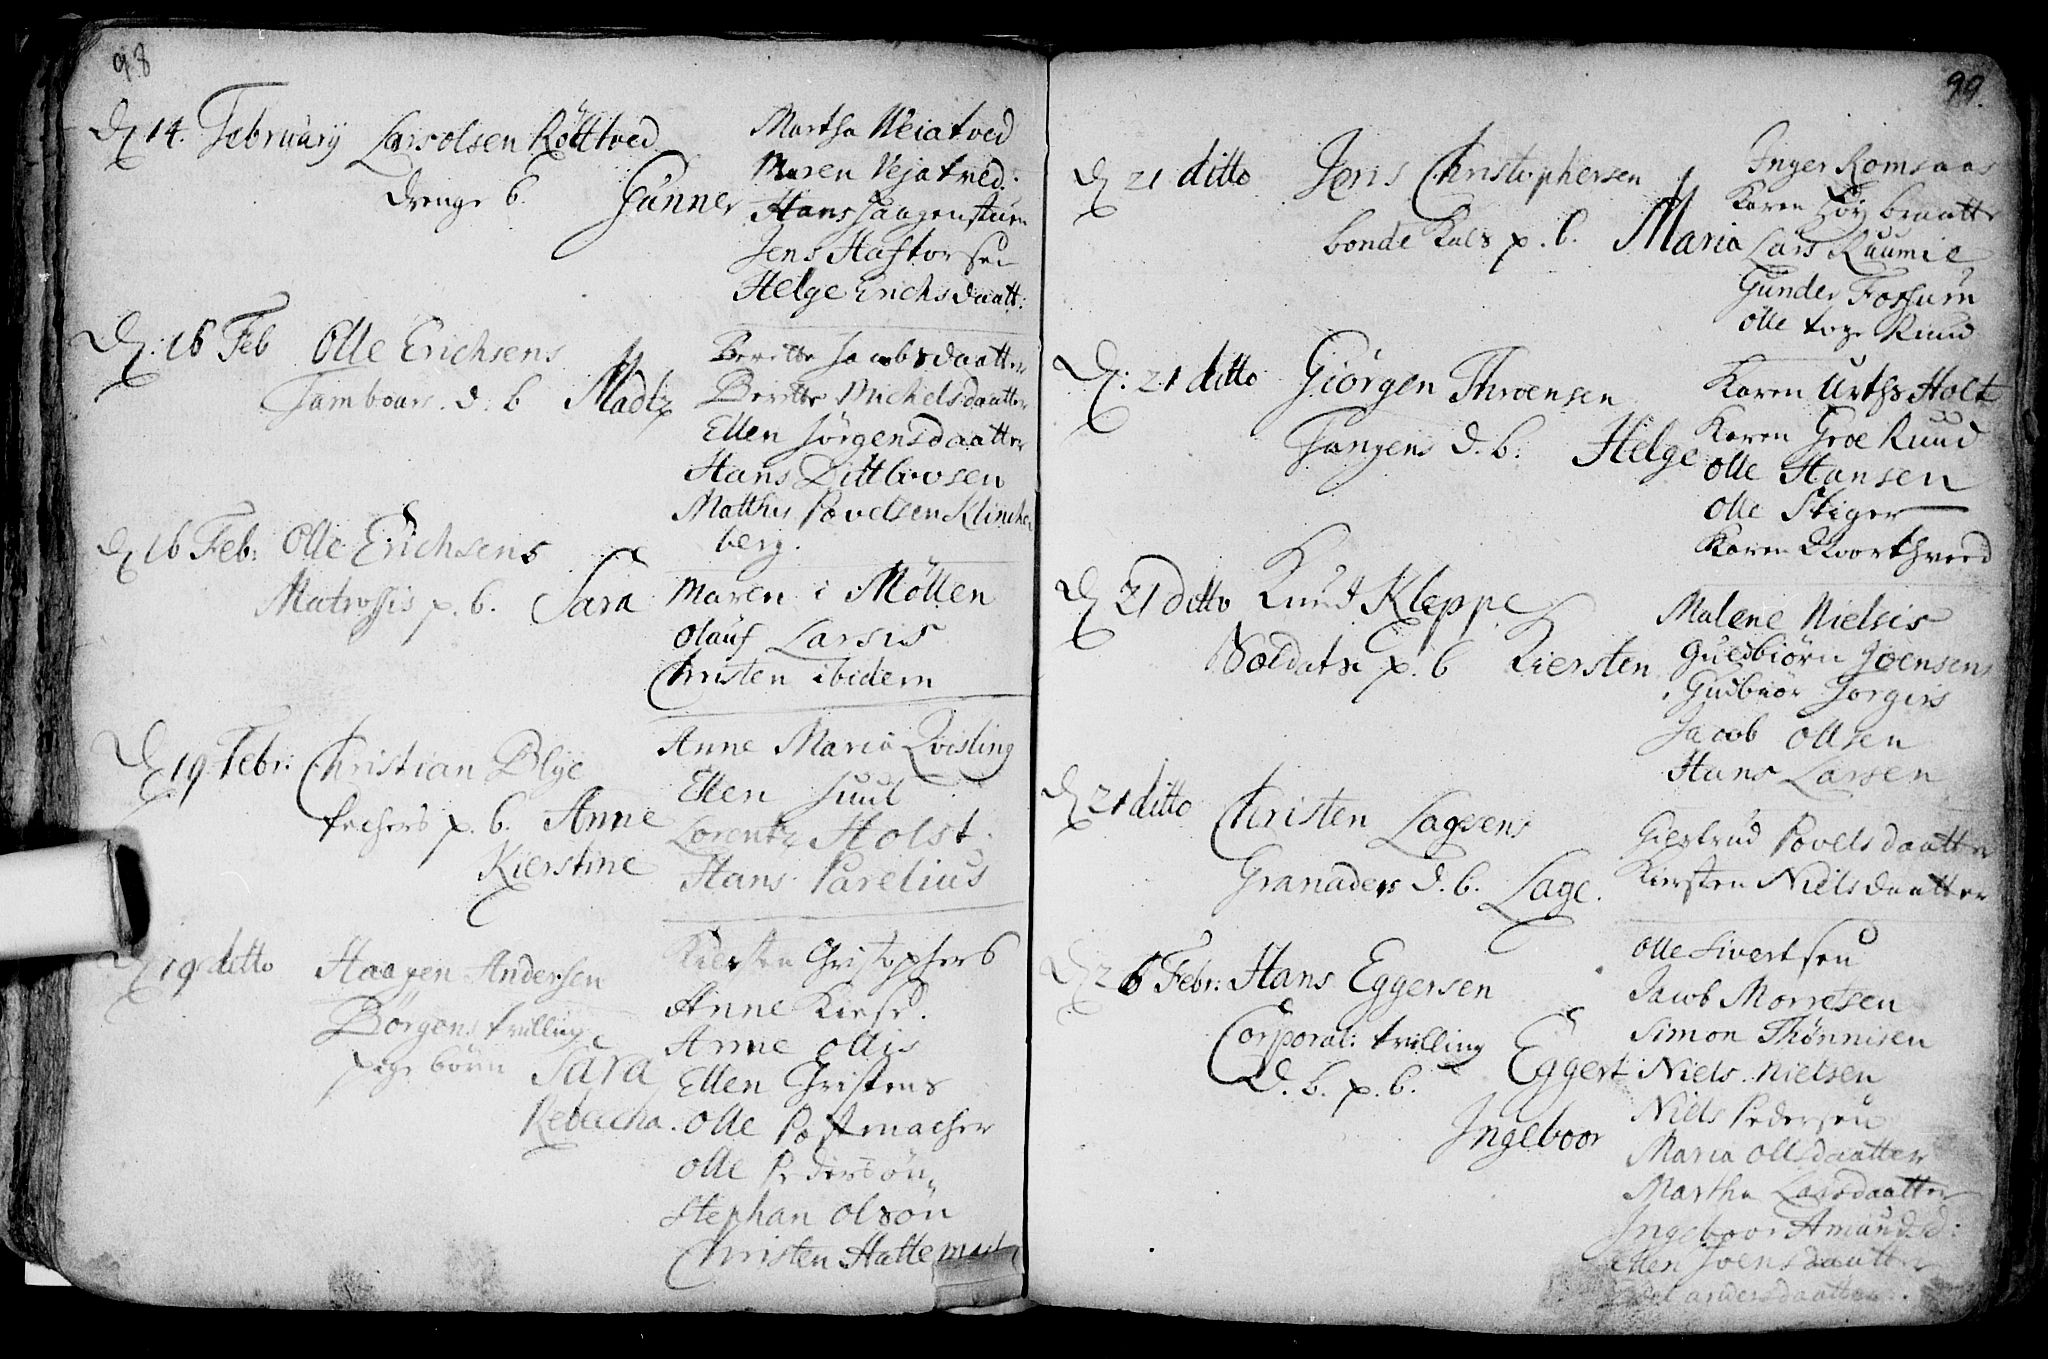 98
D 14. Februarij Lars olsen Röttved
drenge b. Gunner
Martha Weiatved
Maren Vejatved.
Hans Haagensturn
Jens Haftorsen
Helge Erichsdaatt:
D: 16 Feb Olle Erichsens
Tambours. d. b Madtz
Beritte Jacobsdaatter
Beritte Michelsdaatter
Ellen Jörgensdaatter
Hans Dittlovsen
Matthis Povelsen Klincken
berg.
D 16 Feb: Olle Erichsens
Matrossis p. b. Sara
Maren i Möllen
Olauf Larsis
Christen ibidem
D 19 Febr: Christian Blye
techers p. b. Anne
Kierstine
Anne Maria Qvisling
Ellen Juul
Lorentz Holst.
Hans Parelius
D 19 ditto Haagen Andersen
Börgens trilling
pige börn Sara
Rebecha.
Kiersten Christophers
Anne
Anne Ollis
Ellen Christens
Olle Postmacher
Olle Pedersön
Stephan Olsön
Christen Hattemach
99.
D 21 ditto Joris Christophersen
bonde Kals p. b. Maria
Inger Romsaas
Karen braatte
Lars Ruumie
Gunder Fossum
Olle toge Ruud
D: 21 ditto Giörgen Throensen
Tangens d. b: Helge
Karen Urths Holt
Karen Groe Ruud
Olle Hansen
Olle Stiger
Karen
D 21 ditto Knud Kleppe
Soldats p. b Kiersten
Malene Nielsis
Gulbiörn Joensens
Gudbiör Jörgis
Jacob Olsen
Hans Larsen
D 21 ditto Christen Lagesens
Granaders d. b. Lage.
Giertrud Povelsdaatter
Kiersten Nielsdaatter
Olle Sivertsen
Jacob Morretsen
Simon Thönnisen
D 26 Febr: Hans Eggersen
Corporal: trilling
d. b. p. b. Eggert
Ingeboor
Niels Nielsen
Niels Pedersen
Maria Ollsdaatter
Martha Larsdaatter
Ingeboor Amundsd:
Ellen Joensdaatter
andersdaatter.